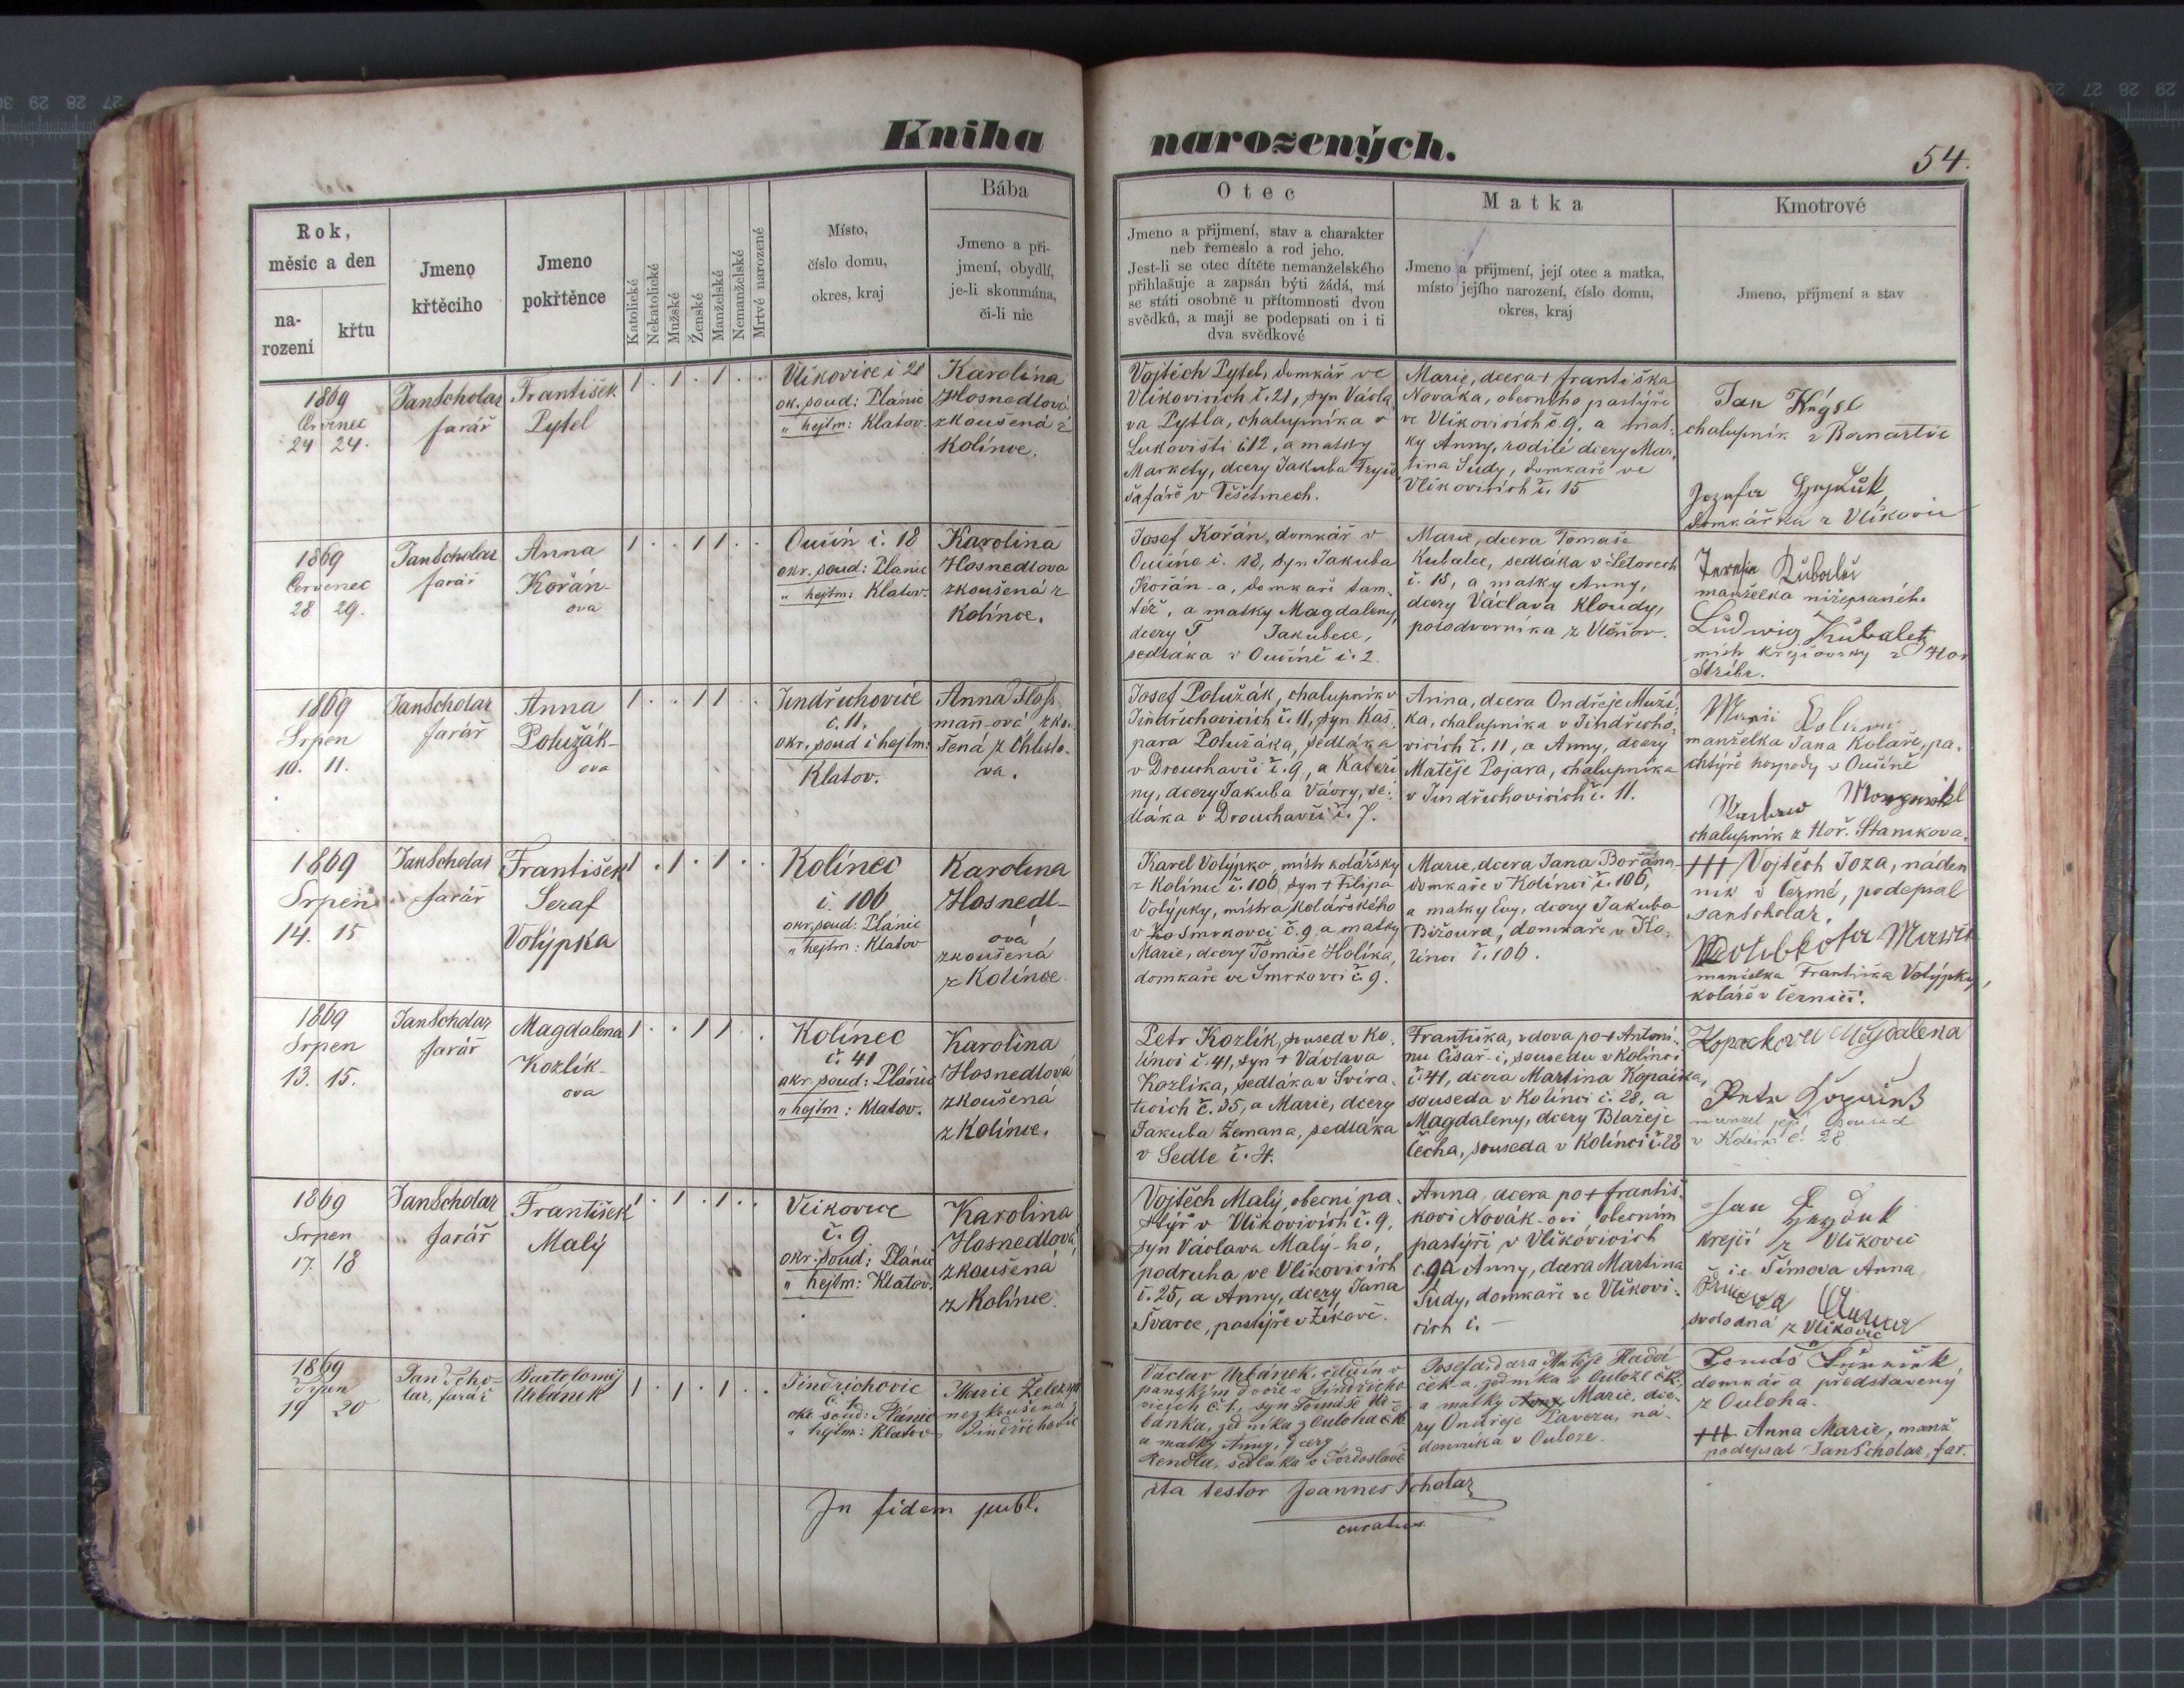 Kniha narozených.
54.
Rok,
měsíc a den
na-
rození
křtu
Jmeno
křtěcího
Jmeno
pokřtěnce
Katolické
Nekatolické
Mužské
Ženské
Manželské
Nemanželské
Mrtvé narozené
Místo,
číslo domu,
okres, kraj
Bába
Jmeno a při-
jmení, obydlí,
je-li skoumána,
či-li nic
Otec
Jmeno a přijmení, stav a charakter
neb řemeslo a rod jeho.
Jest-li se otec dítěte nemanželského
přihlašuje a zapsán býti žádá, má
se státi osobně u přítomnosti dvou
svědků, a mají se podepsati on i ti
dva svědkové
Matka
Jmeno a přijmení, její otec a matka,
místo jejího narození, číslo domu,
okres, kraj
Kmotrové
Jmeno, přijmení a stav
1869
Červenec
24 24.
Jan Scholar
farář
František
Pytel
1 . 1 . 1 . .
Vlkovice č 21
ok. soud: Plánic
" hejtm: Klatov.
Karolina
Hosnedlová
zkoušená z
Kolínce.
Vojtěch Pytel, domkář ve
Vlkovicích č. 21, syn Václa
va Pytla, chalupníka v
Lukovišti č 12, a matky
Markety, dcery Jakuba
šafáře v Těšetinech.
Marie, dcera + Františka
Nováka, obecního pastýře
ve Vlkovicích č 9, a mat-
ky Anny, rodilé dcery Mar-
tina Sudy, domkaře ve
Vlkovicích č. 15
Jan
chalupník z Bernartic
Jozefa
domkářka z Vlkovic
1869
Červenec
28 29.
Jan Scholar
farář
Anna
Kořán-
ova
1 . . 1 1 . .
Oučín č. 18
okr. soud: Plánic
" hejtm: Klatov.
Karolina
Hosnedlova
zkoušená z
Kolínce.
Josef Kořán, domkář v
Oučíně č. 18, syn Jakuba
Kořán-a, domkaře tam-
též, a matky Magdaleny,
dcery T Jakubece,
sedláka v Oučíně č. 2.
Marie, dcera Tomaše
Kubalce, sedláka v Letovech
č. 15, a matky Anny,
dcery Václava Kloudy,
polodvorníka z
Terezie
manželka nížepsaného
Ludwig Kubaletz
mistr krejčovský z Hor
Stříbr.
1869
Srpen
10. 11.
Jan Scholar
farář
Anna
Polužák-
ova
1 . . 1 1 . .
Jindřichovice
č. 11.
okr. soud i hejtm:
Klatov.
Anna
mann-ová zko-
šená z Chlisto-
va.
Josef Polužák, chalupník v
Jindřichovicích č. 11, syn Kaš-
para Polužáka, sedláka
v Drouhavči č. 9, a Kateři
ny, dcery Jakuba Vávry, se-
dláka v Drouhavči č. 7.
Anna, dcera Ondřeje Muži-
ka, chalupníka v Jindřicho-
vicích č. 11, a Anny, dcery
Matěje Pojara, chalupníka
v Jindřichovicích č. 11.
manželka Jana Koláře, pa-
chtýře hospody v Oučíně
chalupník z Hoř. Stankova.
1869
Srpen
14. 15
Jan Scholar
farář
František
Seraf
Volýpka
1 . 1 . 1 . .
Kolínec
č. 106
okr. soud: Plánic
" hejtm: Klatov
Karolina
Hosnedl-
ová
zkoušená
z Kolínce.
Karel Volýpka, mistr kolářský
z Kolínce č. 106, syn + Filipa
Volýpky, mistra kolářského
v Smrkovci č. 9 a matky
Marie, dcery Tomáše Holíka,
domkaře ve Smrkovci č 9.
Marie, dcera Jana Bořána,
domkaře v Kolínci č. 106,
a matky Evy, dcery Jakuba
domkaře v Ko-
línci č. 106.
+++ Vojtěch Joza, náden
ník v podepsal
Jan Scholar.
manželka Františka Volýpky,
koláře v Černíči.
1869
Srpen
13. 15.
Jan Scholar
farář
Magdalena
Kozlík-
ova
1 . . 1 1 . .
Kolínec
č. 41
okr. soud: Plánic
" hejtm: Klatov.
Karolina
Hosnedlová
zkoušená
z Kolínce.
Petr Kozlík, soused v Ko-
línci č. 41, syn + Václava
Kozlíka, sedláka v Svíra-
ticích č. 35, a Marie, dcery
Jakuba Zemana, sedláka
v Sedle č. 4.
Františka, vdova po + Antoní-
nu Císař-i, sousedu v Kolínci
č. 41, dcera Martina Kopačka,
souseda v Kolínci č. 28, a
Magdaleny, dcery Blažeje
Čecha, souseda v Kolínci č. 28
Magdalena
manžel její soused
v Kolínci č. 28
1869
Srpen
17. 18
Jan Scholar
farář
František
Malý
1 . 1 . 1 . .
Vlkovice
č. 9
okr. soud: Plánic
" hejtm: Klatov.
Karolina
Hosnedlová
zkoušená
z Kolínce.
Vojtěch Malý, obecní pa-
stýř v Vlkovicích č. 9,
syn Václava Malý-ho,
podruha ve Vlkovicích
č. 25, a Anny, dcery Jana
Švarce, pastýře v Žikově.
Anna, dcera po + Františ-
kovi Novák-ovi obecním
pastýři v Vlkovicích
č. 9 a Anny, dcera Martina
Sudy, domkaře ve Vlkovi-
cích č. -
Jan
krejčí z Vlkovic
i. e Šimova Anna
svobodná z Vlkovic
1869
Srpen
19 20
Jan Scho-
lar, farář
Bartoloměj
Urbánek
1 . 1 . 1 . .
Jindřichovic
č. 1.
okr soud: Plánic
" hejtm: Klatov
Marie
nezkoušená z
Jindřichovic
Václav Urbánek, čeledín v
panském dvoře v Jindřicho
vicích č. 1., syn Tomáše Ur-
bánka,
a matky Anny, dcery
sedláka v
Josefa, dcera Matěje
a matky Marie, dce-
ry Ondřeje ná-
denníka v Ouloze.
Tomáš
domkář a představený
z Ouloha.
+++ Anna Marie, manž
podepsal Jan Scholar, far.
In fidem publ.
ita testor Joannes Scholar
curatus.